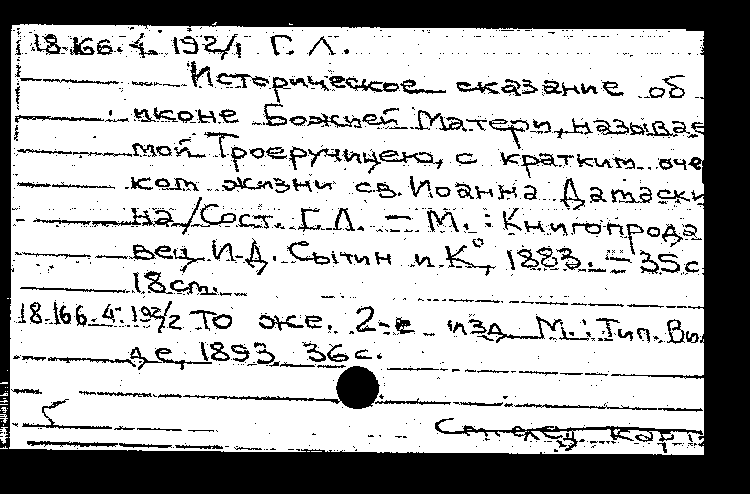 18.166.4.192/1 Г. Л.
Историческое сказание об
иконе Божией Матери, называе
мой Троеручицею, с кратким оче
ком жизни св. Иоанна Дамаски
на/Сост. Г.Л. – М.: Книгопрода
вец И.Д. Сытин и К°, 1883. – 35с
18см.
18.166.4.192/2 То же. 2-е изд М.: Тип. Ви
де, 1893 36с.
См. след. карт